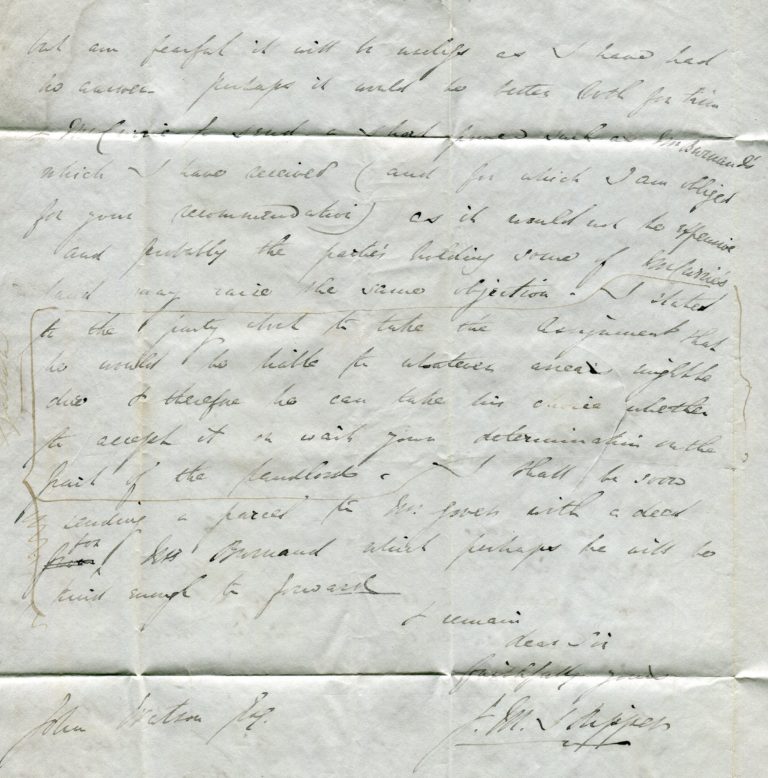 but am fearful it will be useless as I have had
no answer perhaps it would be better both for him
& Mr Currie to send a short power such as Mr Burnand's
which I have received (and for which I am obliged
for your recommendation) as it would not be offensive
and probably the parties holding some of Mr Currie's
land may raise the same objection. I stated
to the party about to take the Assignment that
he would be liable to whatever arrear might be
due & therefore he can take his choice whether
to accept it or wait your determination on the
part of the landlord. I shall be soon
sending a parcel to Mr. Govett with a deed
for Mr Burnand which perhaps he will be
kind enough to forward
& remain
dear Sir
faithfully yours
John Watson Esq.